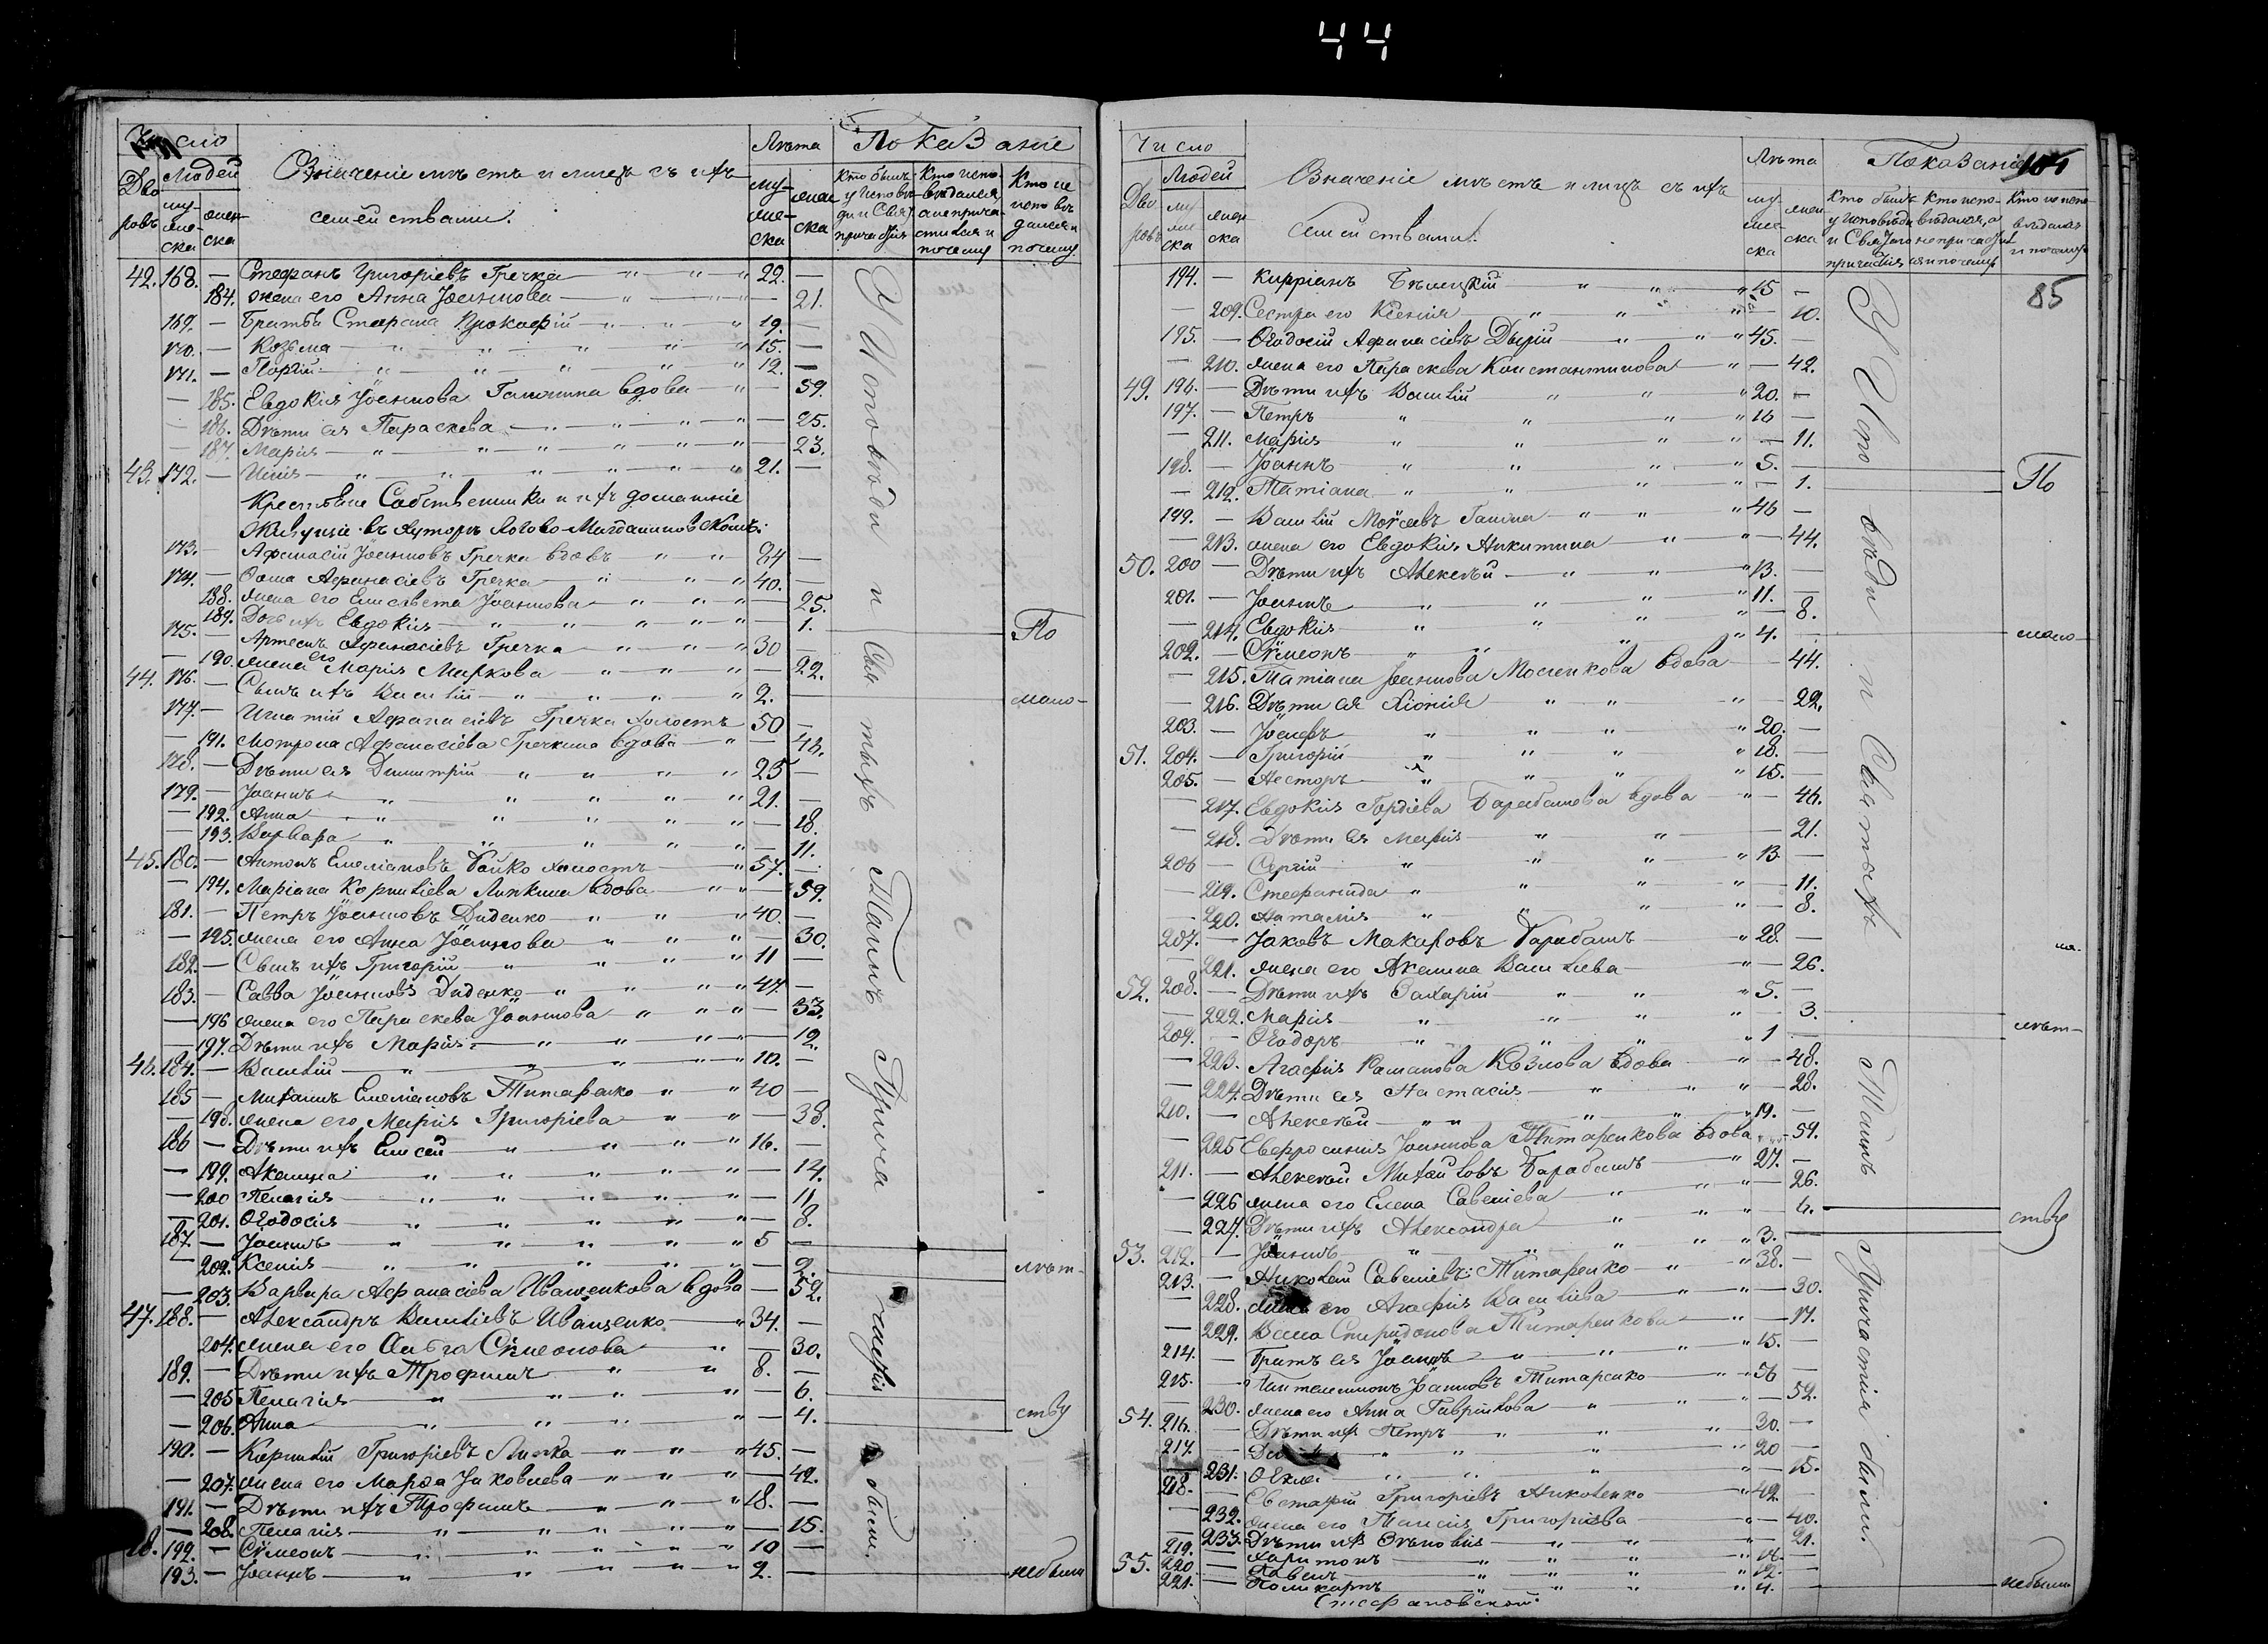 44
Число
Людей
Дво
ровъ
му-
же-
ска
жен-
ска
Означеніе мѣстъ и лицъ съ ихъ
семействами.
Лѣта
му-
же-
ска
жен
ска
Показаніе
Кто былъ
у исповѣ-
ди и Свят.
причастія
Кто испо-
вѣдался,
а не прича-
стился и
почему
Кто не
исповѣ
дался и
почему.
42. 168. — Стефанъ Григоріевъ Гречка — 22. —
— 184. жена его Анна Іоаннова — 21.
169. — Братья Стефана Прокофій — 19. —
170. — Козьма — 15. —
171. — — 12. —
— 185. Евдокія Іоаннова вдова — 59.
— 186. Дѣти ея Параскева — 25.
— 187. Марія — 23.
43. 172. — — 21. —
Крестьяне Собственники и ихъ домашніе
Живущіе въ хуторѣ
173. — Афанасій Іоанновъ Гречка вдовъ 84 —
174. — Ѳома Афанасіевъ Гречка — 40. —
188. жена его Елисавета Іоаннова — 25.
189. Дочь ихъ Евдокія — 1. По
175. — Артемъ Афанасіевъ Гречка — 30 —
— 190. жена его Марія Маркова — 22.
44. 176. — Сынъ ихъ Василій — 2. — мало-
177. — Игнатій Афанасіевъ Гречка холостъ 50 —
— 191. Мотрона Афанасіева Гречкина вдова — 48.
178. — Дѣти ея Димитрій — 25 —
179. — Іоаннъ — 21. —
— 192. Анна — 18.
— 193. Варвара — 11.
45. 180. — Антонъ Емеліановъ Бойко холостъ — 57. —
— 194. Маріана Корниліева Липкина вдова — 59.
181. — Петръ Іоанновъ Диденко — 40. —
— 195. жена его Анна Іоаннова — 30.
182. — Сынъ ихъ Григорій — 11 —
183. — Савва Іоанновъ Диденко — 47. —
— 196 жена его Параскева Іоаннова — 33.
— 197. Дѣти ихъ Марія — 12.
46. 184. — Василій — 10. —
185 — Михаилъ Емеліановъ Титаренко — 40 —
— 198. жена его Марія Григоріева — 38.
186 — Дѣти ихъ Елисей — 16. —
— 199. Акилина — 14.
— 200 Пелагія — 11
— 201. Ѳеодосія — 8.
187. — Іоаннъ — 5 —
— 202. Ксенія — 2. лѣт-
— 203. Варвара Афанасіева Иващенкова вдова — 52.
47. 188. — Александръ Василіевъ Иващенко — 34. —
204. жена его Ольга Сѵмеонова — 30.
189. — Дѣти ихъ Трофимъ — 8. —
— 205 Пелагія — 6.
— 206. Анна — 4. ству
190. — Корнилій Григоріевъ Липка — 45. —
— 207. жена его Марѳа Іаковлева — 42.
191. — Дѣти ихъ Трофимъ — 18. —
— 208. Пелагія — 15.
48. 192. — Сѵмеонъ — 10 —
193. — Іоаннъ — 2. — не были
У Исповѣди и Святыхъ Таинъ Причастія были.
Число
Людей
Дво
ровъ
му
же
ска
жен
ска
Означеніе мѣстъ и лицъ съ ихъ
семействами.
Лѣта
му
же
ска
жен
ска
Показаніе
Кто былъ
у исповѣди
и Свят.
причастія
Кто испо-
вѣдался, а
не причаст
ился и почему
Кто не испо
вѣдался
и почему
85
194. — Кипріанъ Бѣлецкій — 15 —
— 209. Сестра его Ксенія — 10.
195. — Ѳеодосій Афанасіевъ — 45. —
— 210. жена его Параскева Константинова — 42.
49. 196. — Дѣти ихъ Василій — 20. —
197. — Петръ — 16 —
— 211. Марія — 11.
198. — Іоаннъ — 5. — По
— 212. Татіана — 1.
199. — Василій Моѵсеевъ — 46 —
— 213. жена его Евдокія Никитина — 44.
50. 200 — Дѣти ихъ Алексѣй — 13. —
201. — Іоаннъ — 11. —
— 214. Евдокія — 8.
202. — Сѵмеонъ — 4. — мало-
— 215. Татіана Іоаннова вдова — 44.
— 216. Дѣти ея Хіонія — 22.
203. — Іосифъ — 20. —
51. 204. — Григорій — 18. —
205. — Несторъ — 15. —
— 217. Евдокія Гордіева Барабашева вдова — 46.
— 218. Дѣти ея Марія — 21.
206 — Сергій — 13. —
— 219. Стефанида — 11.
— 220. Наталія — 8.
207. — Іаковъ Макаровъ Барабашъ — 28. —
— 221. жена его Акилина Василіева — 26.
52. 208. — Дѣти ихъ Захарій — 5. —
— 222. Марія — 3.
209. — Ѳеодоръ — 1 — лѣт-
— 223. Агафія Романова Козлова вдова — 48.
— 224. Дѣти ея Настасія — 28.
210. — Алексѣй — 19. —
— 225 Евфросинія Іоаннова Титаренкова вдова — 59.
211. — Алексѣй Михайловъ Барабашъ — 27. —
— 226 жена его Елена Савеліева — 26.
— 227. Дѣти ихъ Александра — 6. ству
53. 212. — Іоаннъ — 3. —
213. — Николай Савеліевъ Титаренко — 38. —
— 228. жена его Агафія Василіева — 30.
— 229. Васса Спиридонова Титаренкова — 17.
214. — Братъ ея Іоаннъ — 15. —
215. — Пантелеимонъ Іоанновъ Титаренко — 56 —
— 230. жена его Анна Гавріилова — 52.
54. 216. — Дѣти ихъ Петръ — 30. —
217. — — 20 —
— 231. Ѳекла — 15.
218. — Евстафій Григоріевъ Николенко — 42. —
— 232. жена его Таисія Григоріева — 40.
— 233. Дѣти ихъ Зиновія — 21.
219. — Харитонъ — 18. —
55. 220. — Павелъ — 12. —
221. — Поликарпъ — 4. — не были
Стефановской
У Исповѣди и Святыхъ Таинъ Причастія были